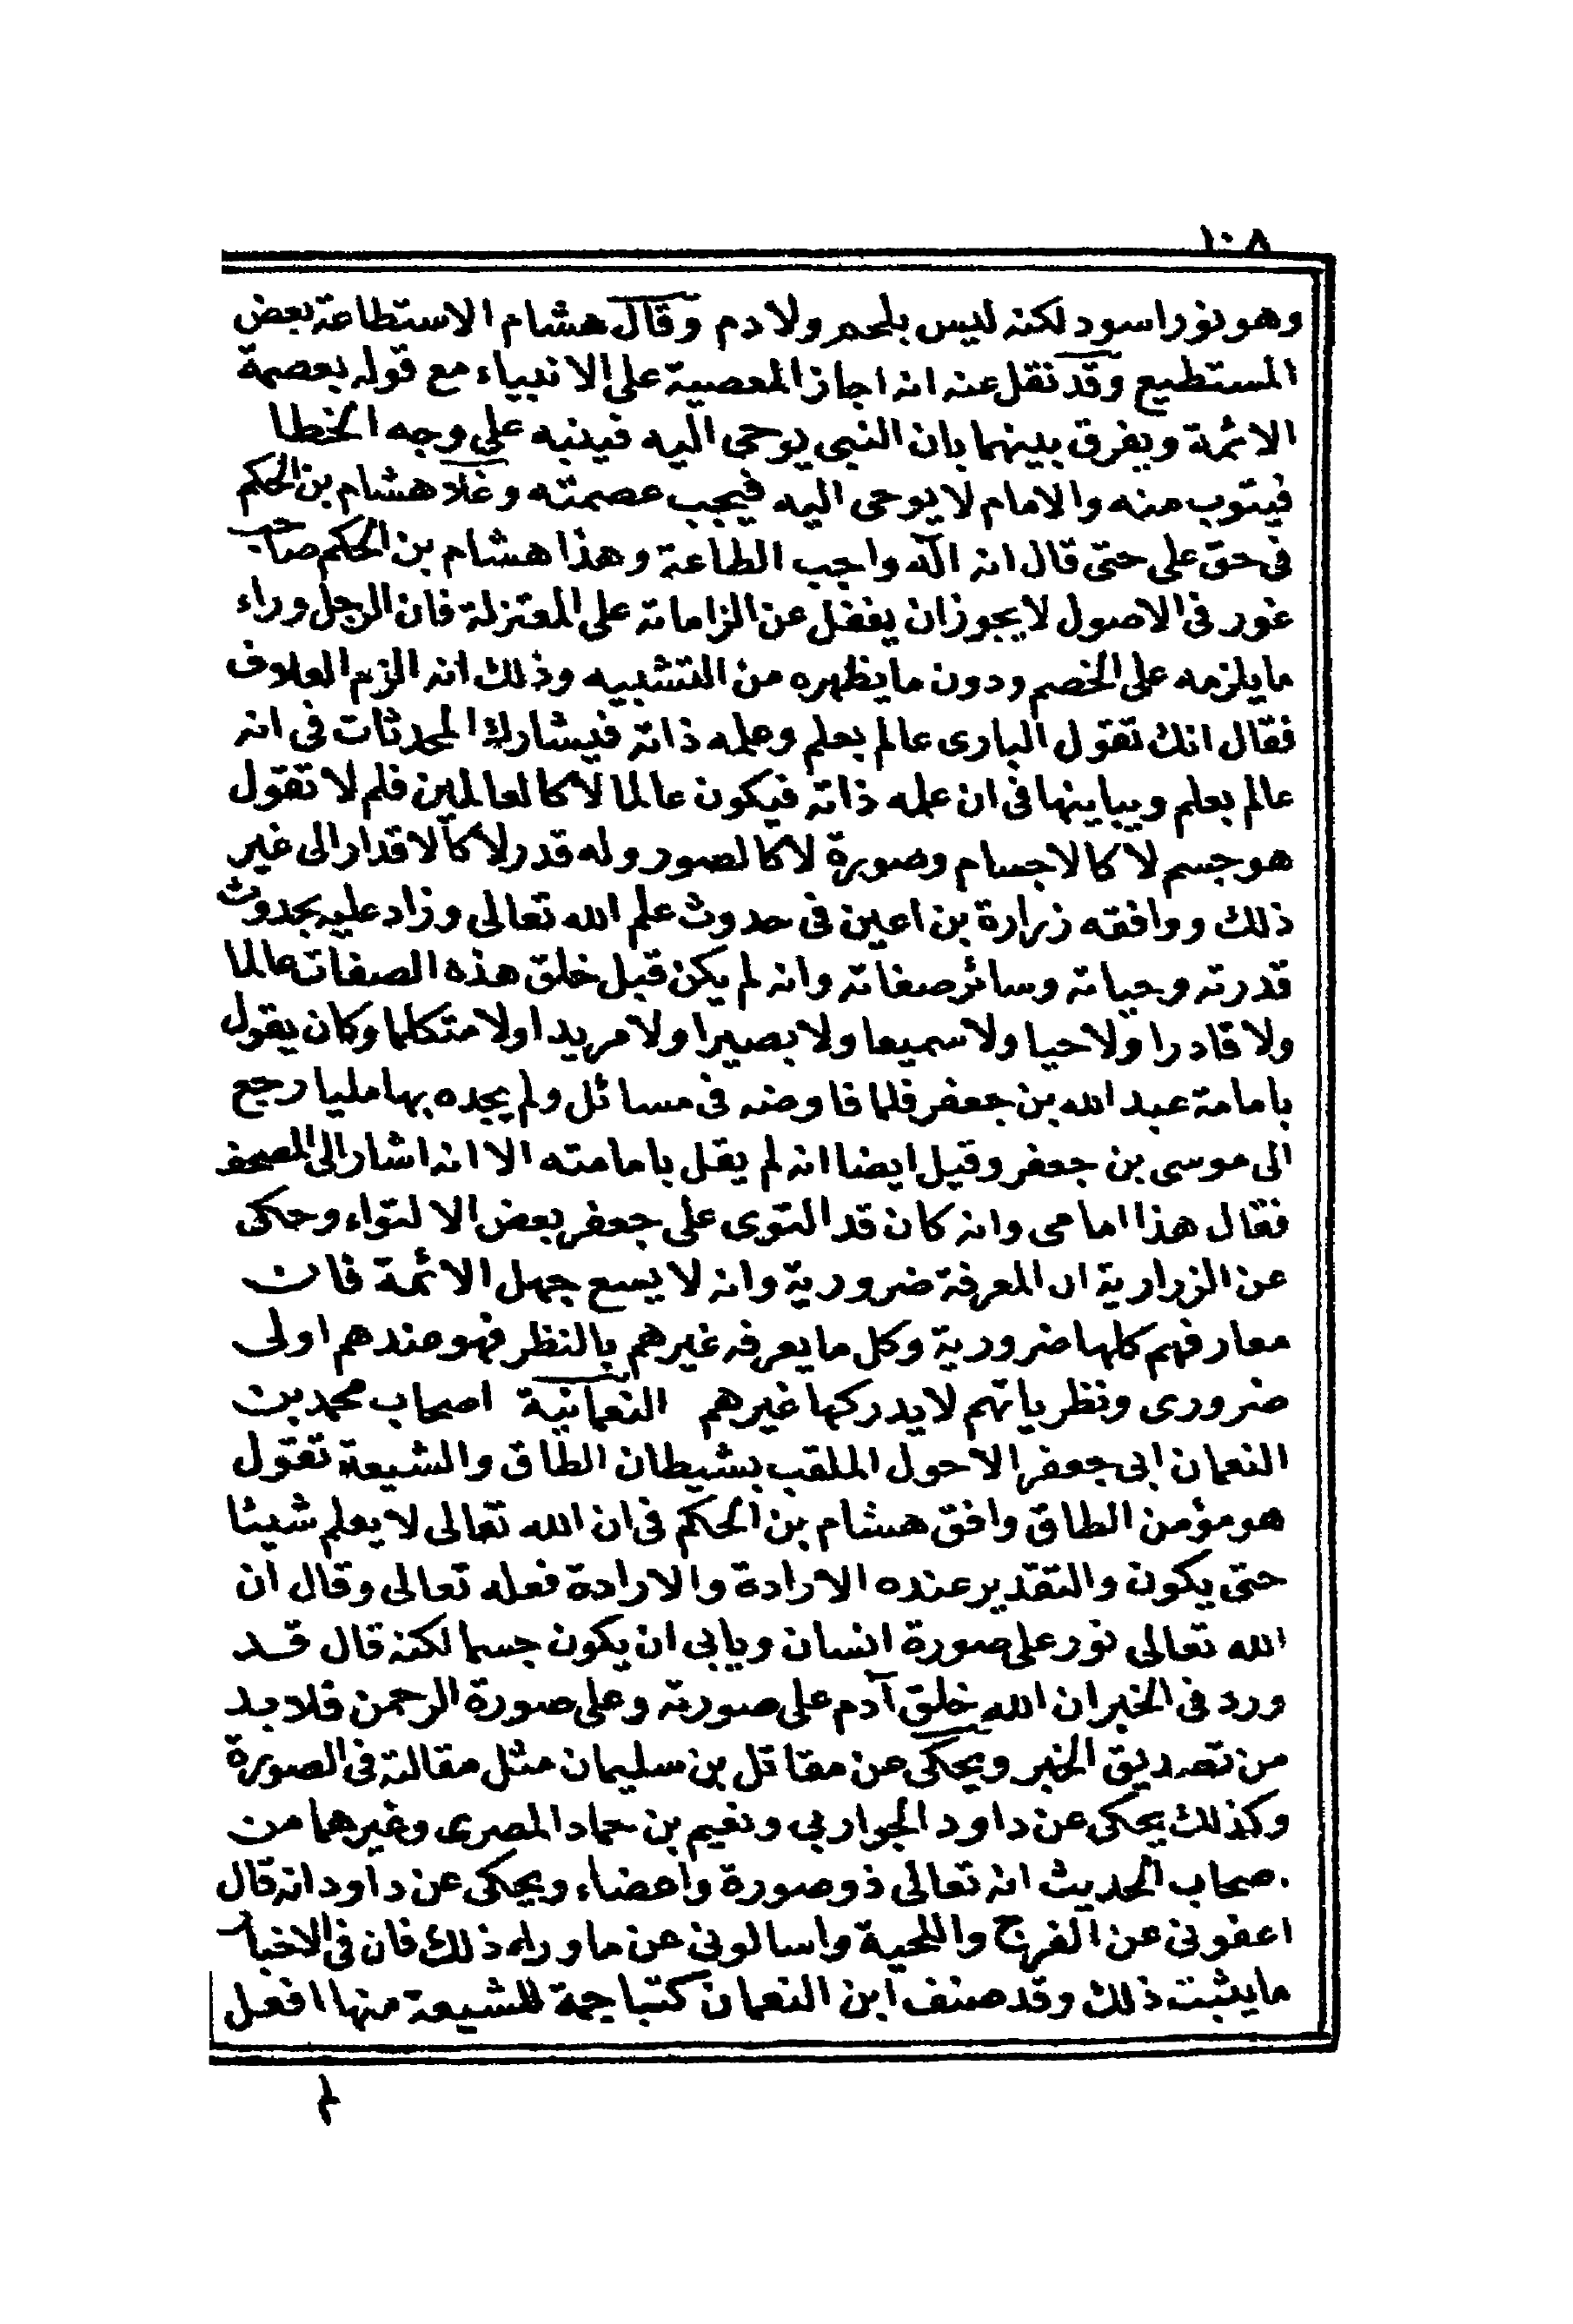 ١٠٨
وهو نور اسود لكنه ليس بلحم ولا دم وقال هشام الاستطاعة بعض
المستطيع وقد نقل عنه انه اجاز المعصية على الانبياء مع قوله بعصمة
الائمة ويفرق بينهما بان النبي يوحى اليه فينبه على وجه الخطا
فيتوب منه والامام لا يوحى اليه فيجب عصمته وغلا هشام بن الحكم
فى حق على حتى قال انه اله واجب الطاعة وهذا هشام بن الحكم صاحب
غور فى الاصول لا يجوز ان يغفل عن الزاماته على المعتزلة فان الرجل وراء
ما يلزمه على الخصم ودون ما يظهره من التشبيه وذلك انه الزم العلاف
فقال انك تقول البارى عالم بعلم وعلمه ذاته فيشارك المحدثات فى انه
عالم بعلم ويباينها فى ان علمه ذاته فيكون عالما لا كالعالمين فلم لا تقول
هو جسم لا كالاجسام وصورة لا كالصور وله قدر لا كالاقدار الى غير
ذلك ووافقه زرارة بن اعين فى حدوث علم الله تعالى وزاد عليه بحدوث
قدرته وحياته وسائر صفاته وانه لم يكن قبل خلق هذه الصفات عالما
ولا قادرا ولا حيا ولا سميعا ولا بصيرا ولا مريدا ولا متكلما وكان يقول
بامامة عبد الله بن جعفر فلما فاوضه فى مسائل ولم يجده بها مليا رجع
الى موسى بن جعفر وقيل ايضا انه لم يقل بامامته الا انه اشار الى المصحف
فقال هذا امامى وانه كان قد التوى على جعفر بعض الالتواء وحكى
عن الزرارية ان المعرفة ضرورية وانه لا يسع جهل الائمة فان
معارفهم كلها ضرورية وكل ما يعرفه غيرهم بالنظر فهو عندهم اولى
ضرورى ونظرياتهم لا يدركها غيرهم النعمانية اصحاب محمد بن
النعمان ابى جعفر الاحول الملقب بشيطان الطاق والشيعة تقول
هو مؤمن الطاق وافق هشام بن الحكم فى ان الله تعالى لا يعلم شيئا
حتى يكون والتقدير عنده الارادة والارادة فعله تعالى وقال ان
الله تعالى نور على صورة انسان ويابى ان يكون جسما لكنه قال قد
ورد فى الخبر ان الله خلق آدم على صورته وعلى صورة الرحمن فلا بد
من تصديق الخبر ويحكى عن مقاتل بن سليمان مثل مقالته فى الصورة
وكذلك يحكى عن داود الجواربي ونعيم بن حماد المصرى وغيرهما من
اصحاب الحديث انه تعالى ذو صورة واعضاء ويحكى عن داود انه قال
اعفونى عن الفرج واللحية واسالونى عن ما وراء ذلك فان فى الاخبار
ما يثبت ذلك وقد صنف ابن النعمان كتبا جمة للشيعة منها افعل
لم